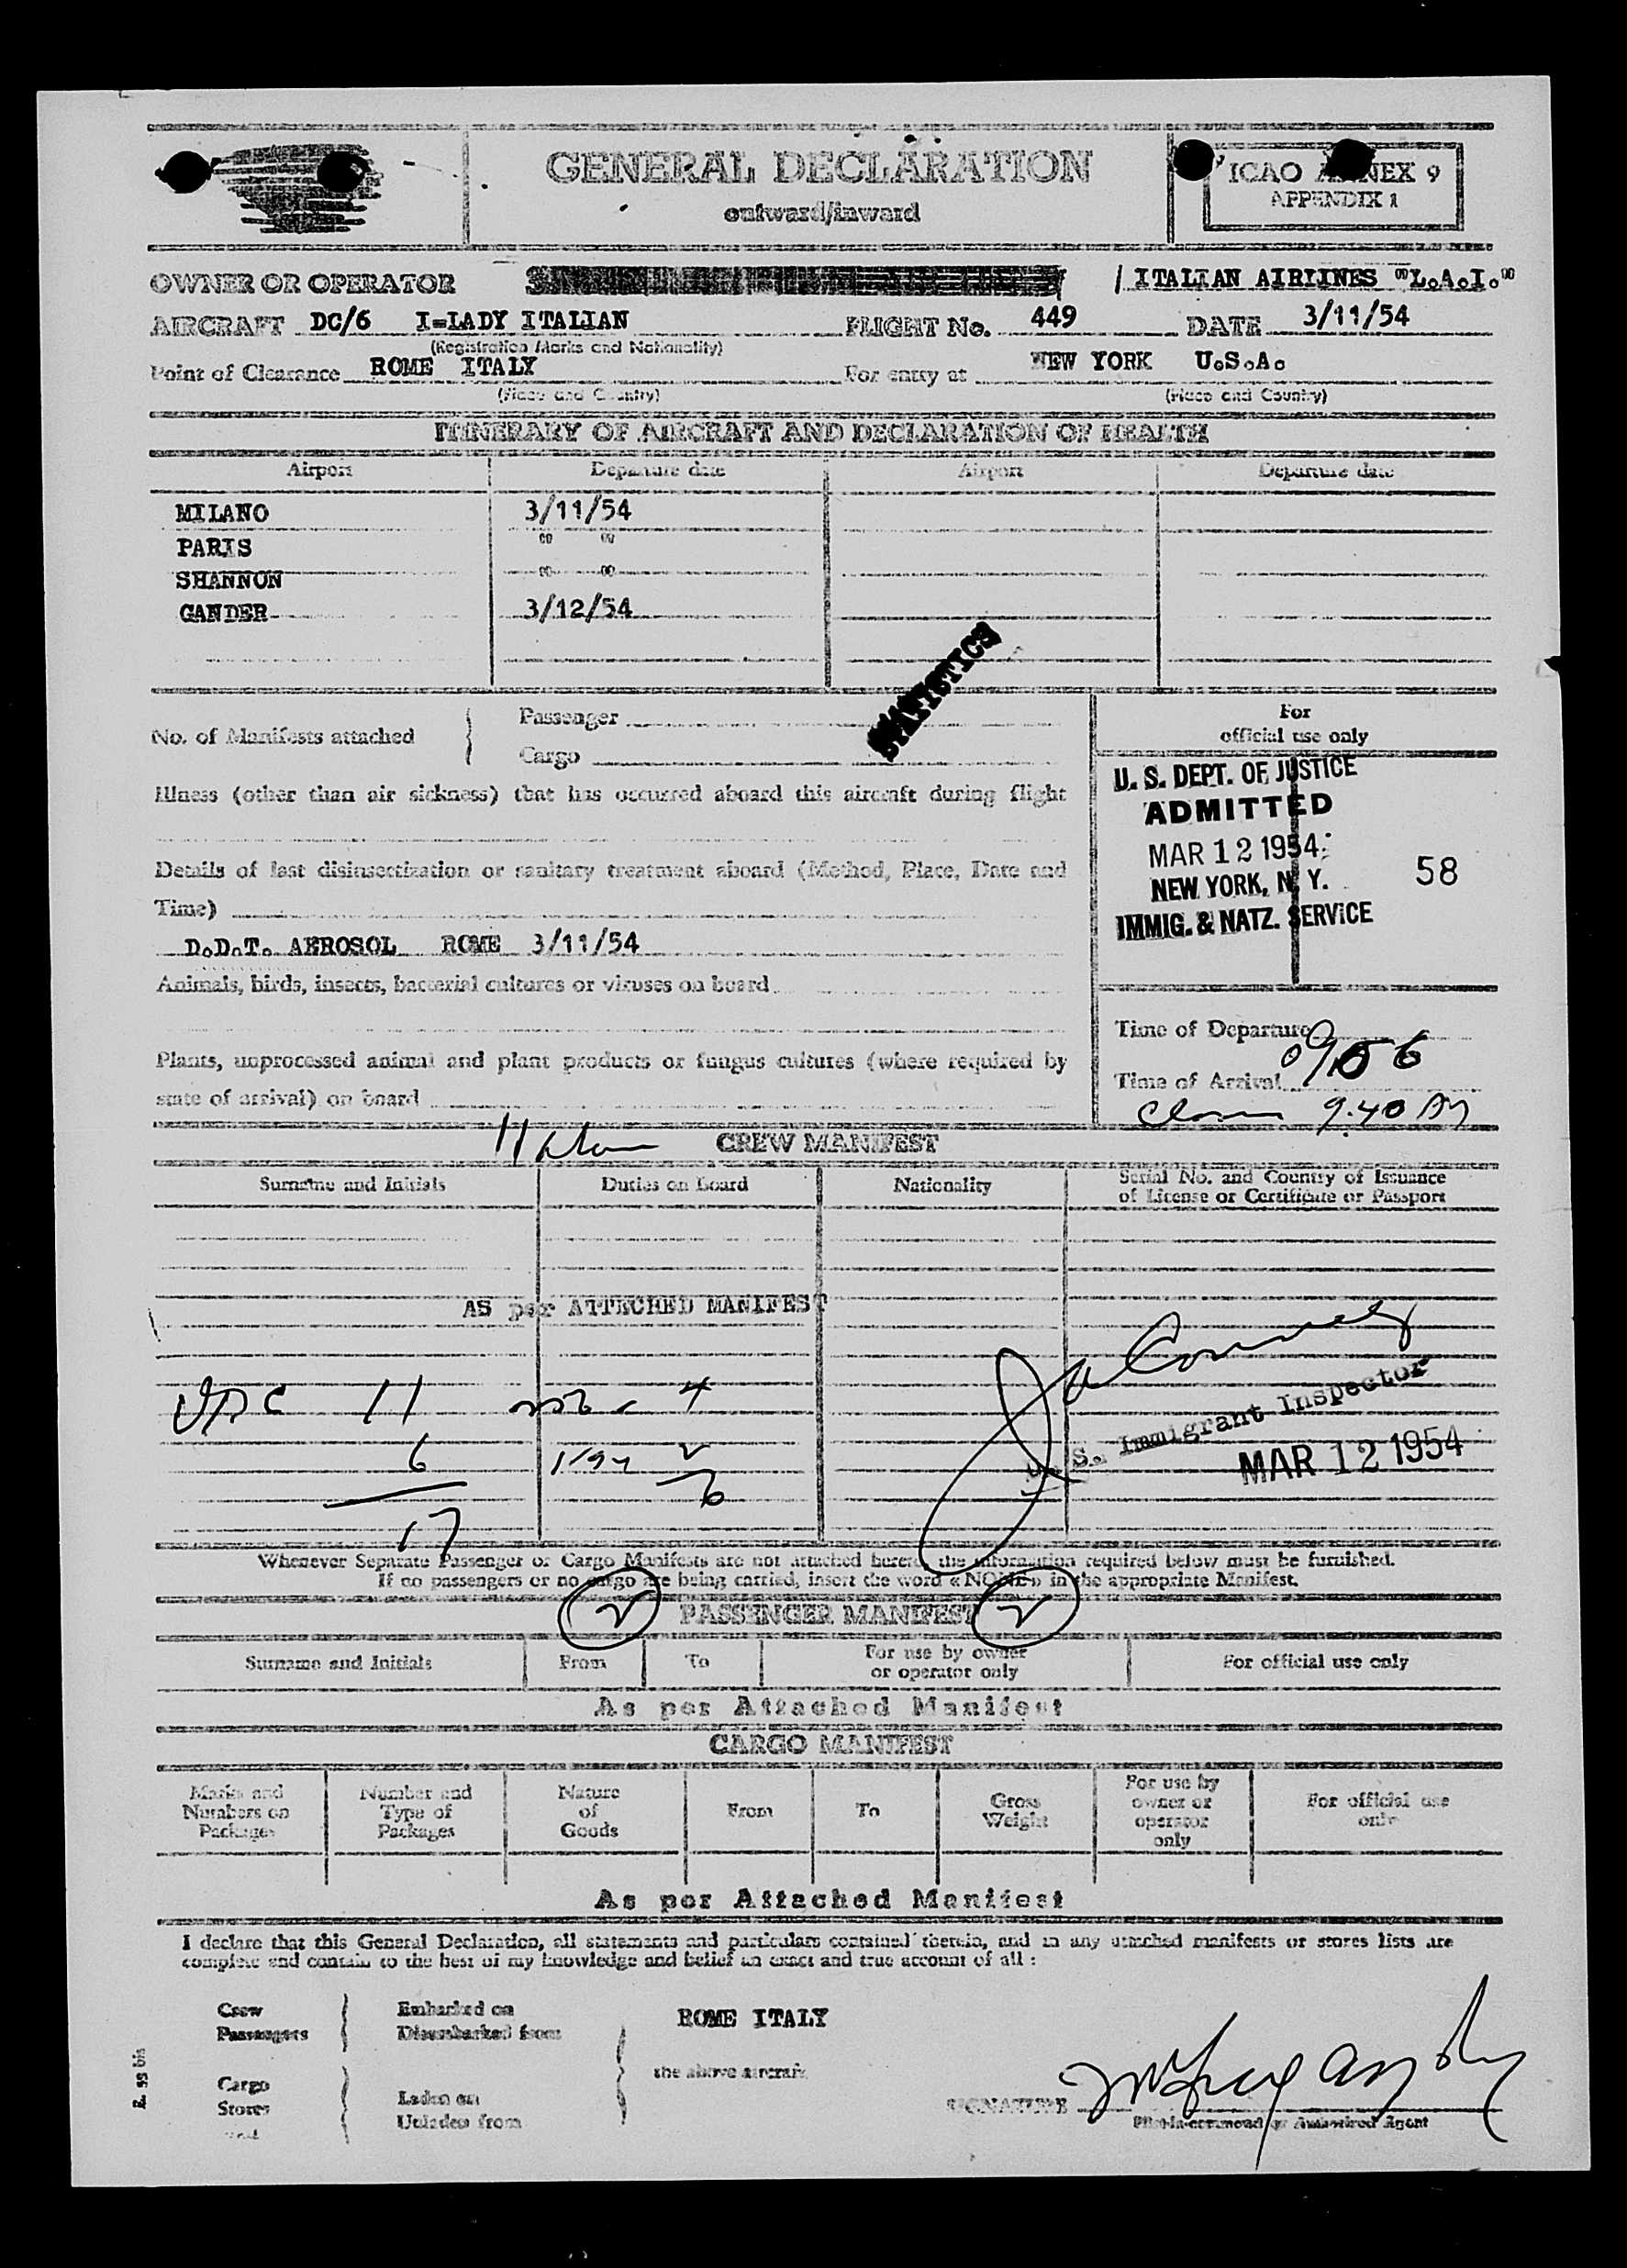 GENERAL DECLARATION
outward/inward
ICAO ANNEX 9
APPENDIX 1
OWNER OR OPERATOR / ITALIAN AIRLINES "L.A.I."
AIRCRAFT DC/6 I-LADY ITALIAN FLIGHT No. 449 DATE 3/11/54
(Registration Marks and Nationality)
Point of Clearance ROME ITALY For entry at NEW YORK U.S.A.
(Place and Country) (Place and Country)
ITINERARY OF AIRCRAFT AND DECLARATION OF HEALTH
Airport Departure date Airport Departure date
MILANO 3/11/54
PARIS " "
SHANNON " "
GANDER 3/12/54
STATISTICS
No. of Manifests attached { Passenger
Cargo
For
official use only
U. S. DEPT. OF JUSTICE
ADMITTED
MAR 12 1954
NEW YORK, N. Y.
IMMIG. & NATZ. SERVICE
58
Illness (other than air sickness) that has occurred aboard this aircraft during flight
Details of last disinsectization or sanitary treatment aboard (Method, Place, Date and
Time)
D.D.T. AEROSOL ROME 3/11/54
Animals, birds, insects, bacterial cultures or viruses on board
Plants, unprocessed animal and plant products or fungus cultures (where required by
state of arrival) on board
Time of Departure
Time of Arrival
9.40 AM
11
CREW MANIFEST
Surname and Initials Duties on Board Nationality Serial No. and Country of Issuance
of License or Certificate or Passport
AS per ATTECHED MANIFEST
11 4
6 2
6
17
U. S. Immigrant Inspector
MAR 12 1954
Whenever Separate Passenger or Cargo Manifests are not attached hereto, the information required below must be furnished.
If no passengers or no cargo are being carried, insert the word «NONE» in the appropriate Manifest.
2 PASSENGER MANIFEST 2
Surname and Initials From To For use by owner
or operator only For official use only
As per Attached Manifest
CARGO MANIFEST
Marks and
Numbers on
Packages
Number and
Type of
Packages
Nature
of
Goods
From
To
Gross
Weight
For use by
owner or
operator
only
For official use
only
As per Attached Manifest
I declare that this General Declaration, all statements and particulars contained therein, and in any attached manifests or stores lists are
complete and contain to the best of my knowledge and belief an exact and true account of all :
Crew
Passengers
Embarked on
Disembarked from
ROME ITALY
the above aircraft.
Cargo
Stores
Laden on
Unladen from
SIGNATURE
Pilot-in-command or Authorized Agent